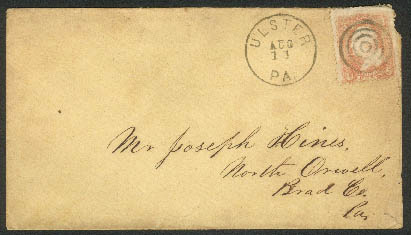 ULSTER
AUG
PA.
Mr Joseph Hines,
North Orwell,
Brad Co.
Pa.